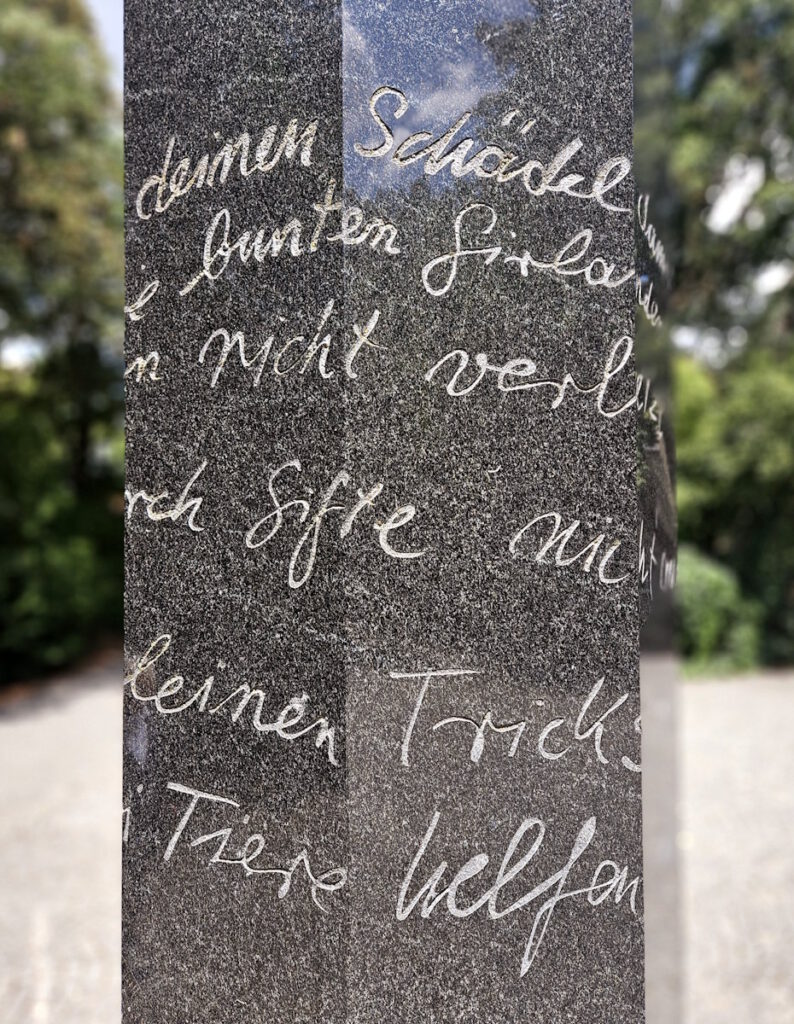 deinen Schädel
bunten Girla
n nicht verl
rch Gifte nic
leinen Tricks
Tiere helfen